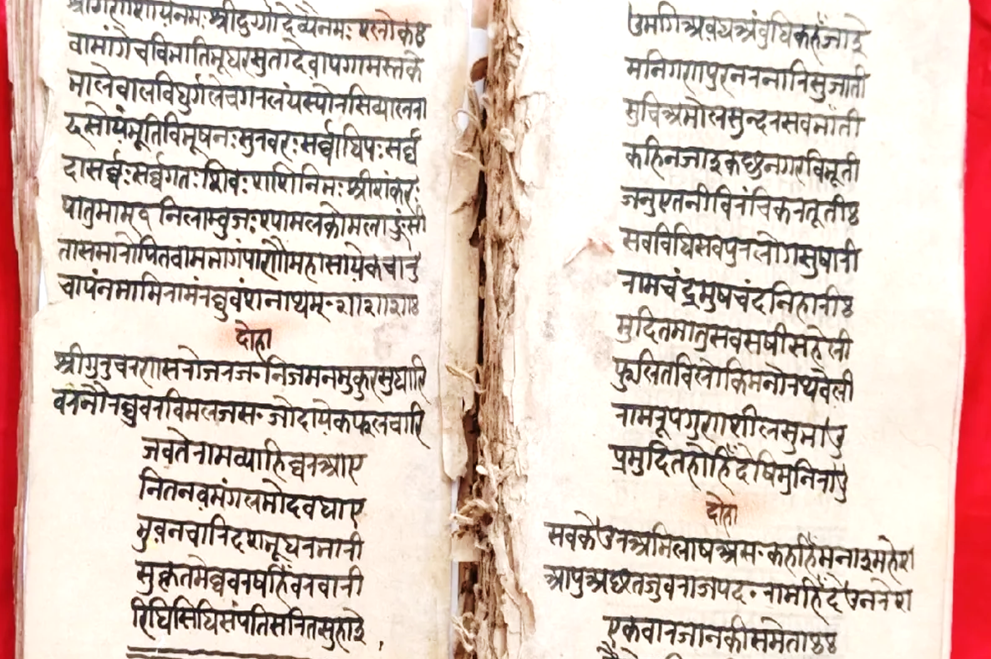 श्रीगणेशायनमः श्रीदुर्गादेव्यैनमः श्लोक ॥
वामांगेचविभातिभूधरसुतादेवापगामस्तके
भालेवालविधुर्गलेचगरलंयस्योरसिव्यालरा
ट्सोयंभूतिविभूषनःसुरवरःसर्व्वाधिपःसर्व्व
दासर्व्वःसर्व्वगतःशिवःशशिनिभःश्रीशंकरः
पातुमाम्१ निलाम्वुजःश्यामलकोमलांगंसी
तासमारोपितवामभागंपाणौमहासायेकचारु
चापंनमामिरामंरघुवंशनाथम्॰
दोहा
श्रीगुरुचरणासरोजरज॰निजमनमुकुरसुधारि
वरनौरघुवरविमलजस॰जोदायेकफलचारि
जवतेरामव्याहिघरआए
नितनवमंगलमोदवधाए
भुवनचारिदशभूधरभारी
सुकृतमेघवरषहिंवरवारी
रिधिसिधिसंपतिसरितसुहाई
उमगिअवधअंवुधिकहँआई
मनिगणपुरनरनारिसुजाती
सुचिअमोलसुन्दरसवभाँती
कहिनजाइकछुनगरविभूती
जनुएतनीविरंचिकरतूती॥
सवविधिसवपुरलोगसुषारी
रामचंद्रमुषचंदनिहारी॥
मुदितमातुसवसषीसहेली
फुलितविलोकिमनोरथवेली
रामरूपगुणशीलसुभाउ
प्रमुदितहोहिंदेषिमुनिराउ
दोहा
सवकेउरअभिलाषअस॰कहहिंमनाइमहेश
आपुअछतजुवराजपद॰रामहिंदेउनरेश
एकवारजानकीसमेता॥